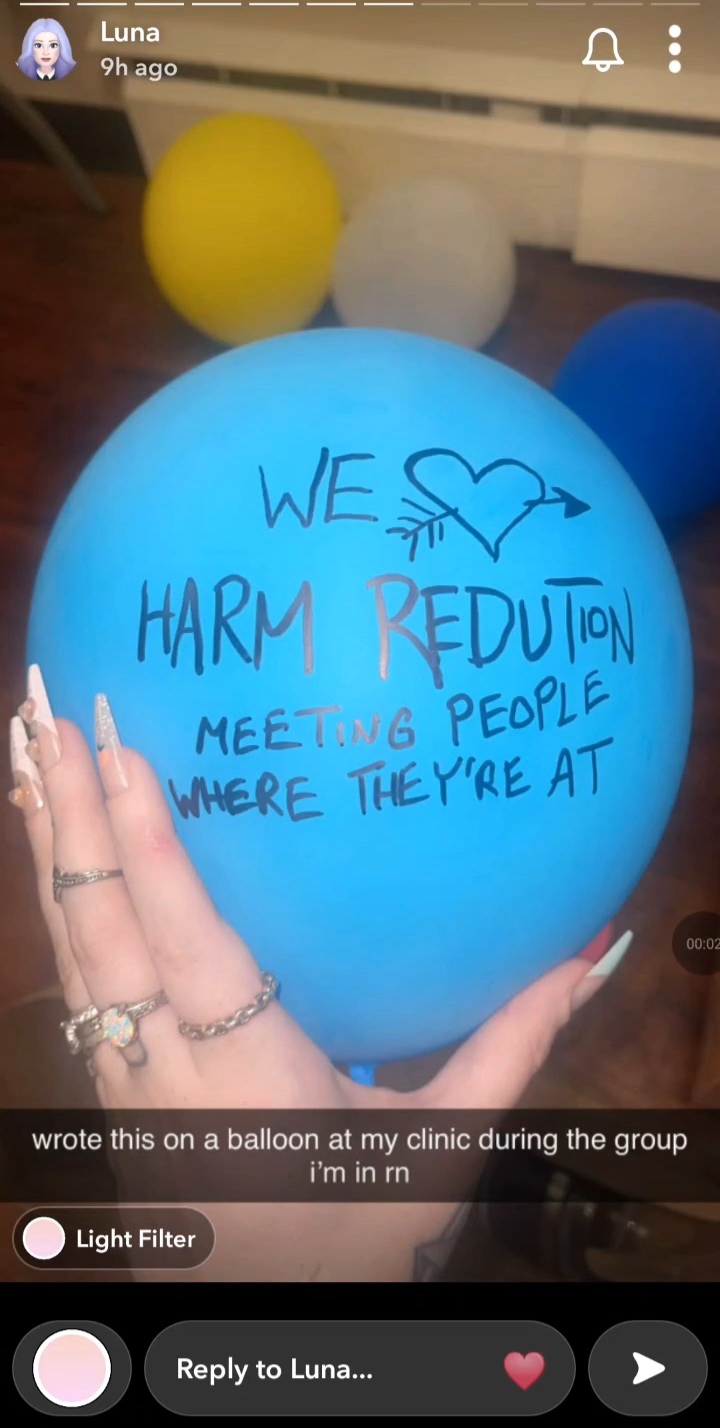 Luna
9h ago
WE
HARM REDUTION
MEETING PEOPLE
WHERE THEY'RE AT
00:02
wrote this on a balloon at my clinic during the group
i'm in rn
Light Filter
Reply to Luna...